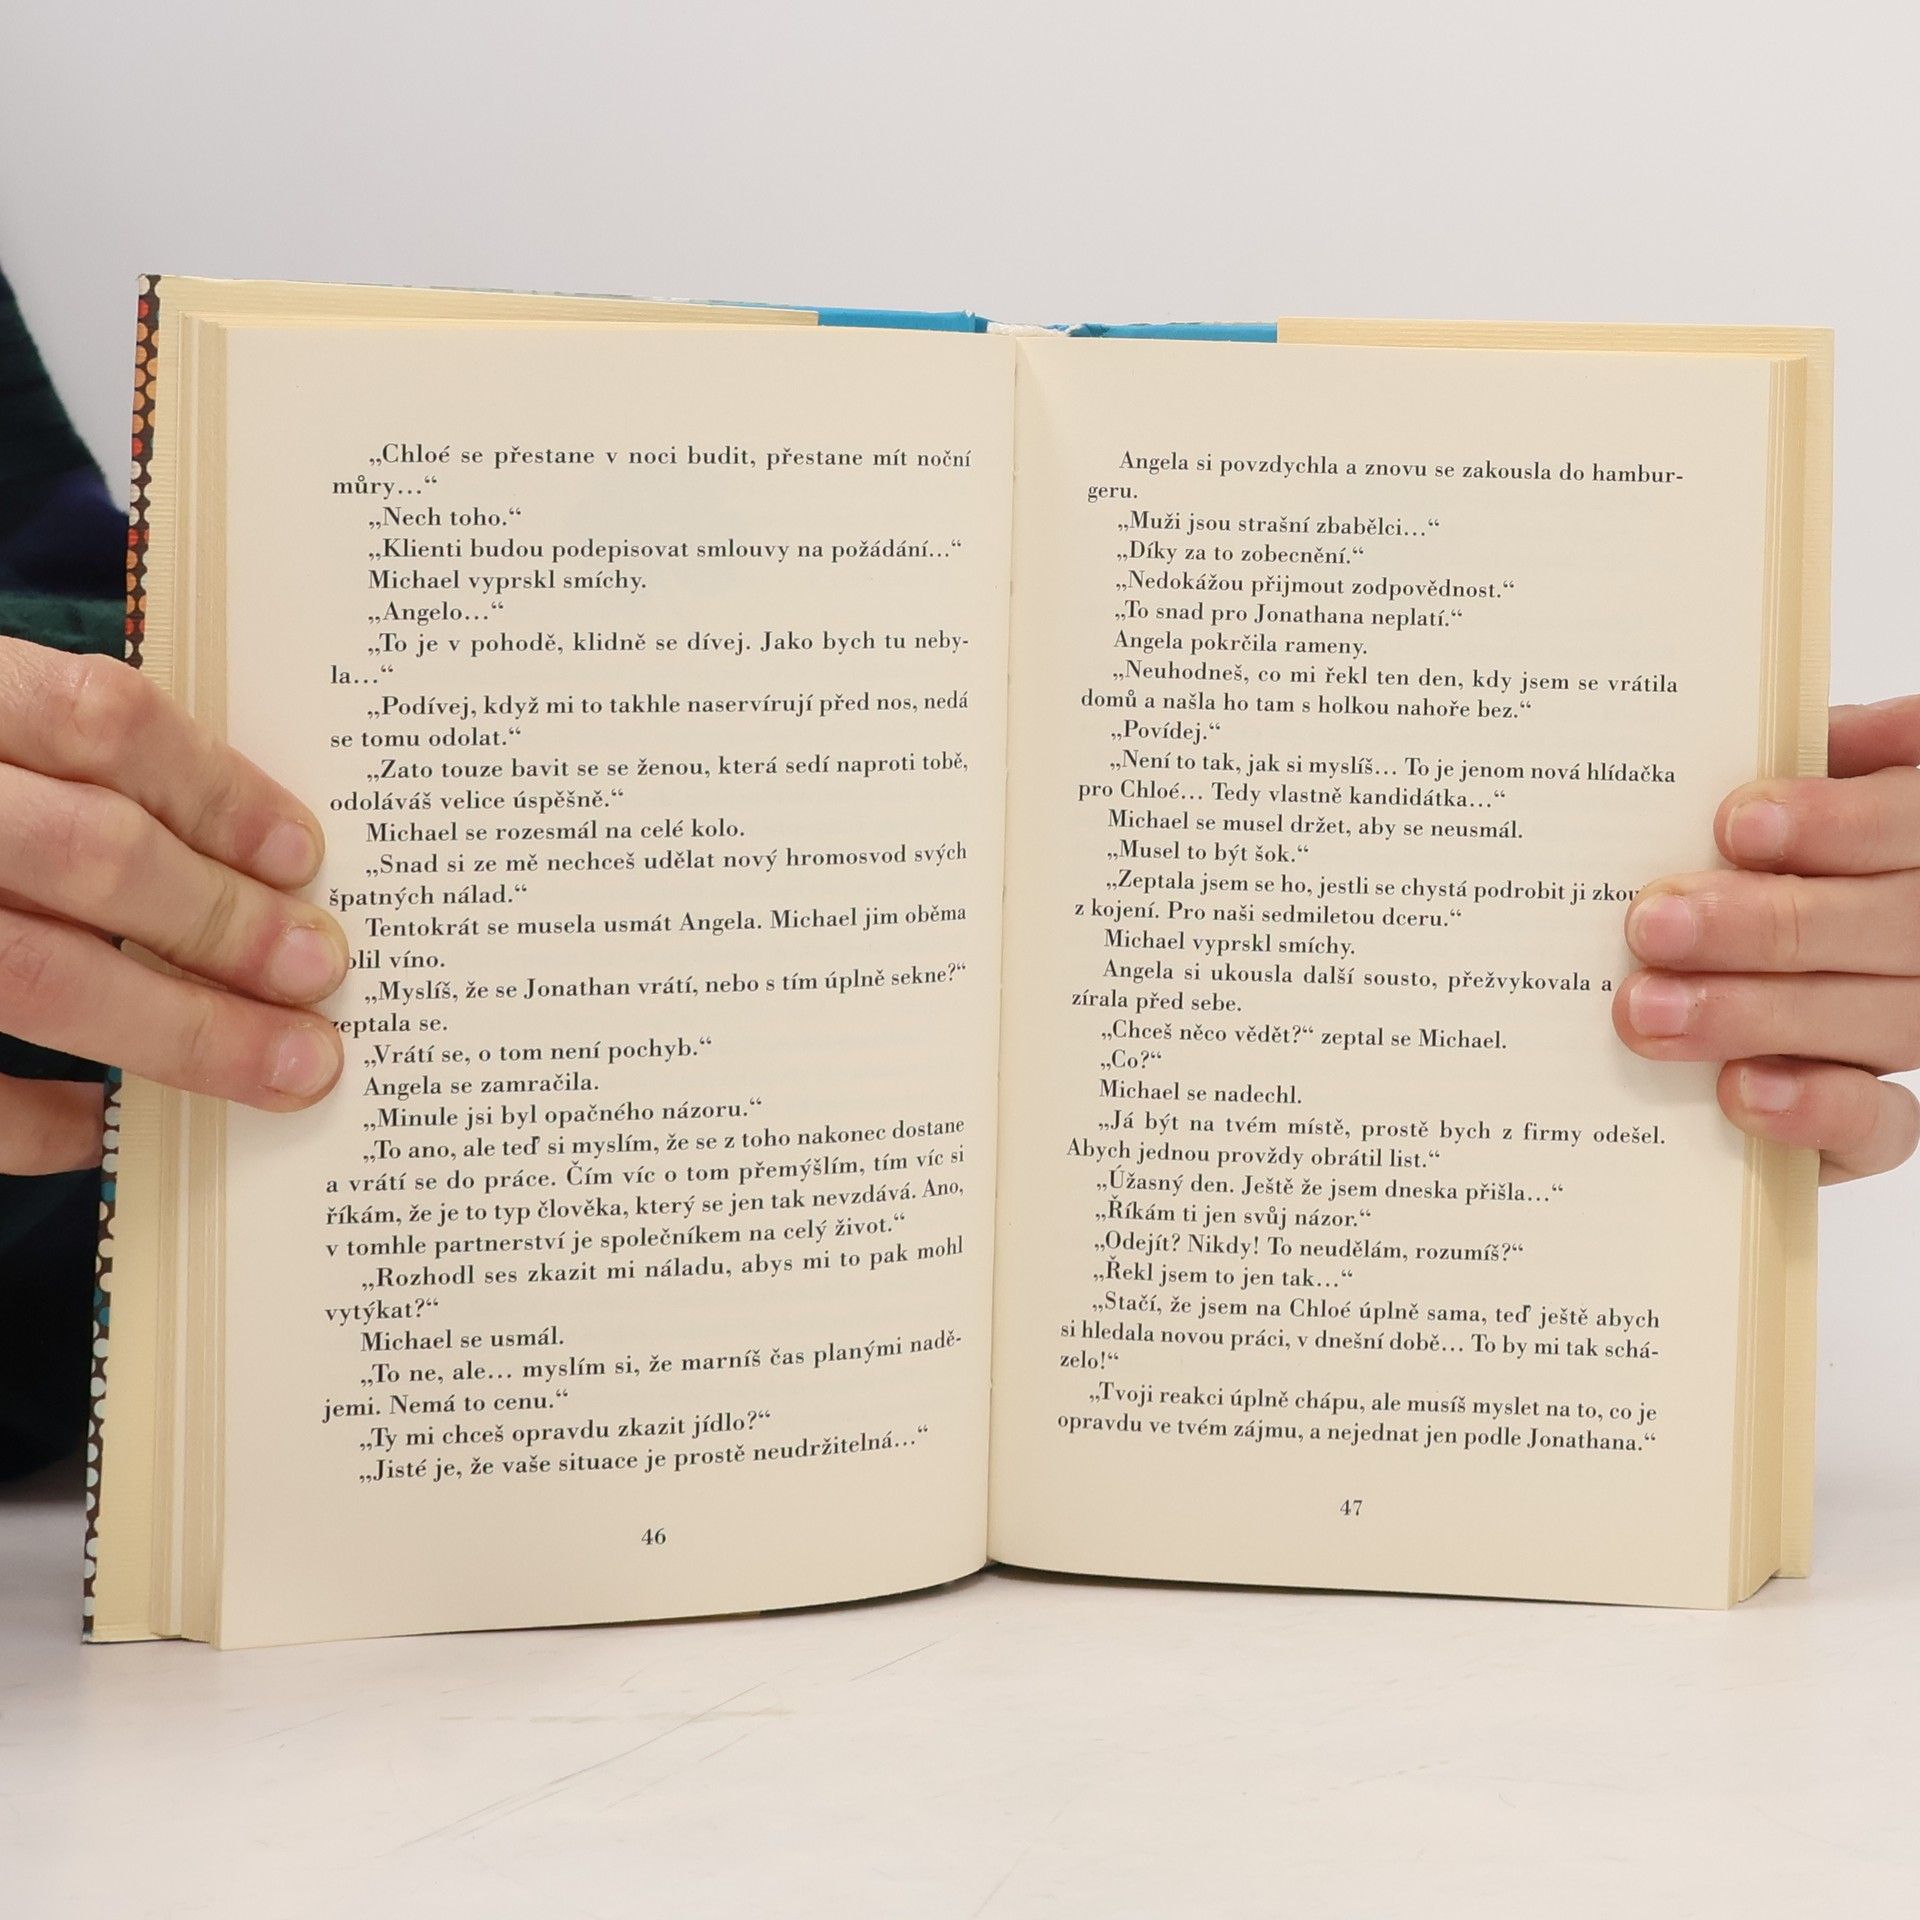 „Chloé se přestane v noci budit, přestane mít noční
můry…“
„Nech toho.“
„Klienti budou podepisovat smlouvy na požádání…“
Michael vyprskl smíchy.
„Angelo…“
„To je v pohodě, klidně se dívej. Jako bych tu neby-
la…“
„Podívej, když mi to takhle naservírují před nos, nedá
se tomu odolat.“
„Zato touze bavit se se ženou, která sedí naproti tobě,
odoláváš velice úspěšně.“
Michael se rozesmál na celé kolo.
„Snad si ze mě nechceš udělat nový hromosvod svých
špatných nálad.“
Tentokrát se musela usmát Angela. Michael jim oběma
víno.
„Myslíš, že se Jonathan vrátí, nebo s tím úplně sekne?“
zeptala se.
„Vrátí se, o tom není pochyb.“
Angela se zamračila.
„Minule jsi byl opačného názoru.“
„To ano, ale teď si myslím, že se z toho nakonec dostane
a vrátí se do práce. Čím víc o tom přemýšlím, tím víc si
říkám, že je to typ člověka, který se jen tak nevzdává. Ano,
v tomhle partnerství je společníkem na celý život.“
„Rozhodl ses zkazit mi náladu, abys mi to pak mohl
vytýkat?“
Michael se usmál.
„To ne, ale… myslím si, že marníš čas planými nadě-
jemi. Nemá to cenu.“
„Ty mi chceš opravdu zkazit jídlo?“
„Jisté je, že vaše situace je prostě neudržitelná…“
46
Angela si povzdychla a znovu se zakousla do hambur-
geru.
„Muži jsou strašní zbabělci…“
„Díky za to zobecnění.“
„Nedokážou přijmout zodpovědnost.“
„To snad pro Jonathana neplatí.“
Angela pokrčila rameny.
„Neuhodneš, co mi řekl ten den, kdy jsem se vrátila
domů a našla ho tam s holkou nahoře bez.“
„Povídej.“
„Není to tak, jak si myslíš… To je jenom nová hlídačka
pro Chloé… Tedy vlastně kandidátka…“
Michael se musel držet, aby se neusmál.
„Musel to být šok.“
„Zeptala jsem se ho, jestli se chystá podrobit ji
z kojení. Pro naši sedmiletou dceru.“
Michael vyprskl smíchy.
Angela si ukousla další sousto, přežvykovala a
zírala před sebe.
„Chceš něco vědět?“ zeptal se Michael.
„Co?“
Michael se nadechl.
„Já být na tvém místě, prostě bych z firmy odešel.
Abych jednou provždy obrátil list.“
„Úžasný den. Ještě že jsem dneska přišla…“
„Říkám ti jen svůj názor.“
„Odejít? Nikdy! To neudělám, rozumíš?“
„Řekl jsem to jen tak…“
„Stačí, že jsem na Chloé úplně sama, teď ještě abych
si hledala novou práci, v dnešní době… To by mi tak schá-
zelo!“
„Tvoji reakci úplně chápu, ale musíš myslet na to, co je
opravdu ve tvém zájmu, a nejednat jen podle Jonathana.“
47